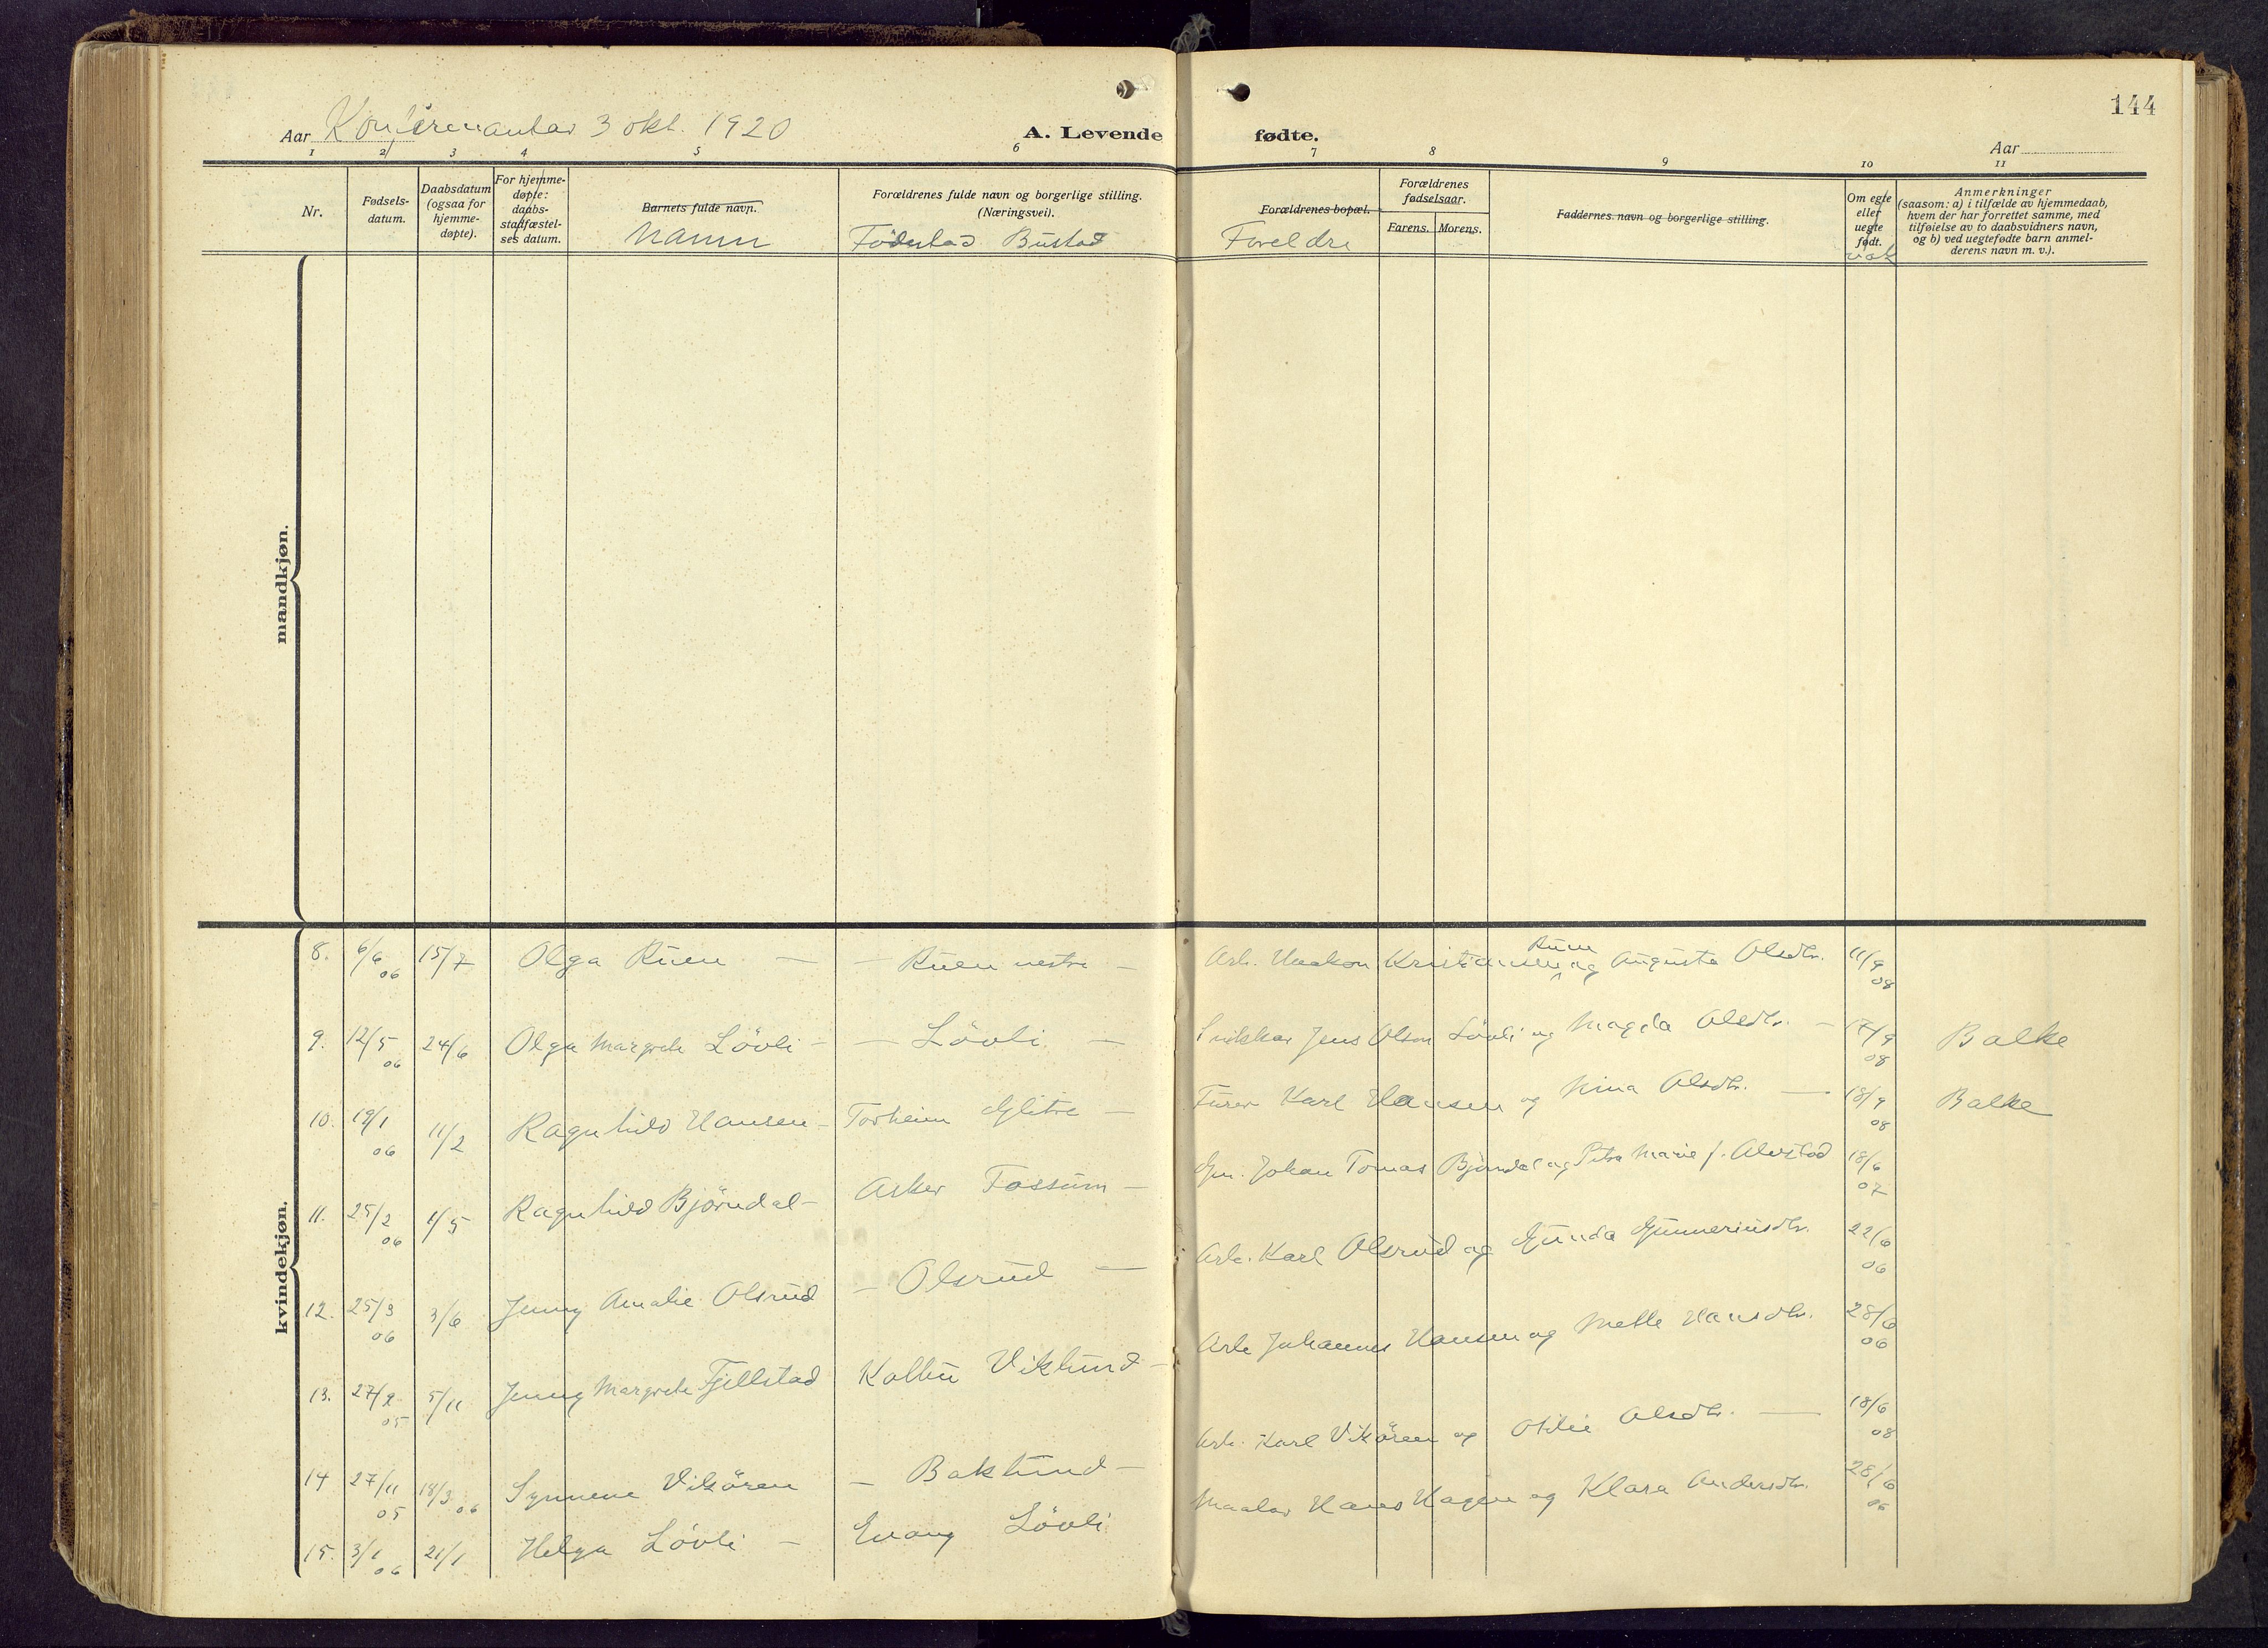 144
Aar Konfirmantar 3 okt. 1920
A. Levende fødte.
Aar
1 2 3 4 5 6 7 8 9 10 11
Nr.
Fødsels-
datum.
Daabsdatum
(ogsaa for
hjemme-
døpte).
For hjemme-
døpte:
daabs-
stadfæstel-
ses datum.
Barnets fulde navn.
Namn
Forældrenes fulde navn og borgerlige stilling.
(Næringsvei).
Fødestad Bustad
Forældrenes bopæl.
Foreldre
Forældrenes
fødselsaar.
Farens. Morens.
Faddernes navn og borgerlige stilling.
Om egte
eller
uegte
født.
vak
Anmerkninger
(saasom: a) i tilfælde av hjemmedaab,
hvem der har forrettet samme, med
tilføielse av to daabsvidners navn,
og b) ved uegtefødte barn anmel-
derens navn m. v.).
mandkjøn.
kvindekjøn.
8. 6/6 06 15/7 Olga Ruen — — Ruen vestre — Arb. Haakon Kristiansen Ruen og Augusta Olsdtr. 11/9 08
9. 12/5 06 24/6 Olga Margrete Lövli — — Lövli — Snikkar Jens Olsen Lövli og Magda Olsdtr. — 17/9 08 Balke
10. 19/1 06 11/2 Ragnhild Hansen — Torheim Glitre — Furer Karl Hansen og Nina Olsdtr. — 18/9 08 Balke
11. 25/2 06 1/5 Ragnhild Björndal — Asker Fossum — Gm. Johan Tomas Björndal og Petra Marie f. Alvstad 18/6 07
12. 25/3 06 3/6 Jenny Amalie Olsrud — Olsrud — Arb. Karl Olsrud og Gunda Gunneriusdtr. 22/6 06
13. 27/9 05 5/11 Jenny Margrete Fjellstad Kolbu Viklund — Arb Johannes Hansen og Mette Hansdtr. 28/6 06
14 27/11 05 18/3 06 Synnene Viksören — Baklund — Arb. Karl Viksören og Otilie Olsdtr. — 18/6 08
15. 3/1 06 21/1 Helga Lövli — Evang Lövli Maalar Hans Hagen og Klara Andersdtr. 28/6 06